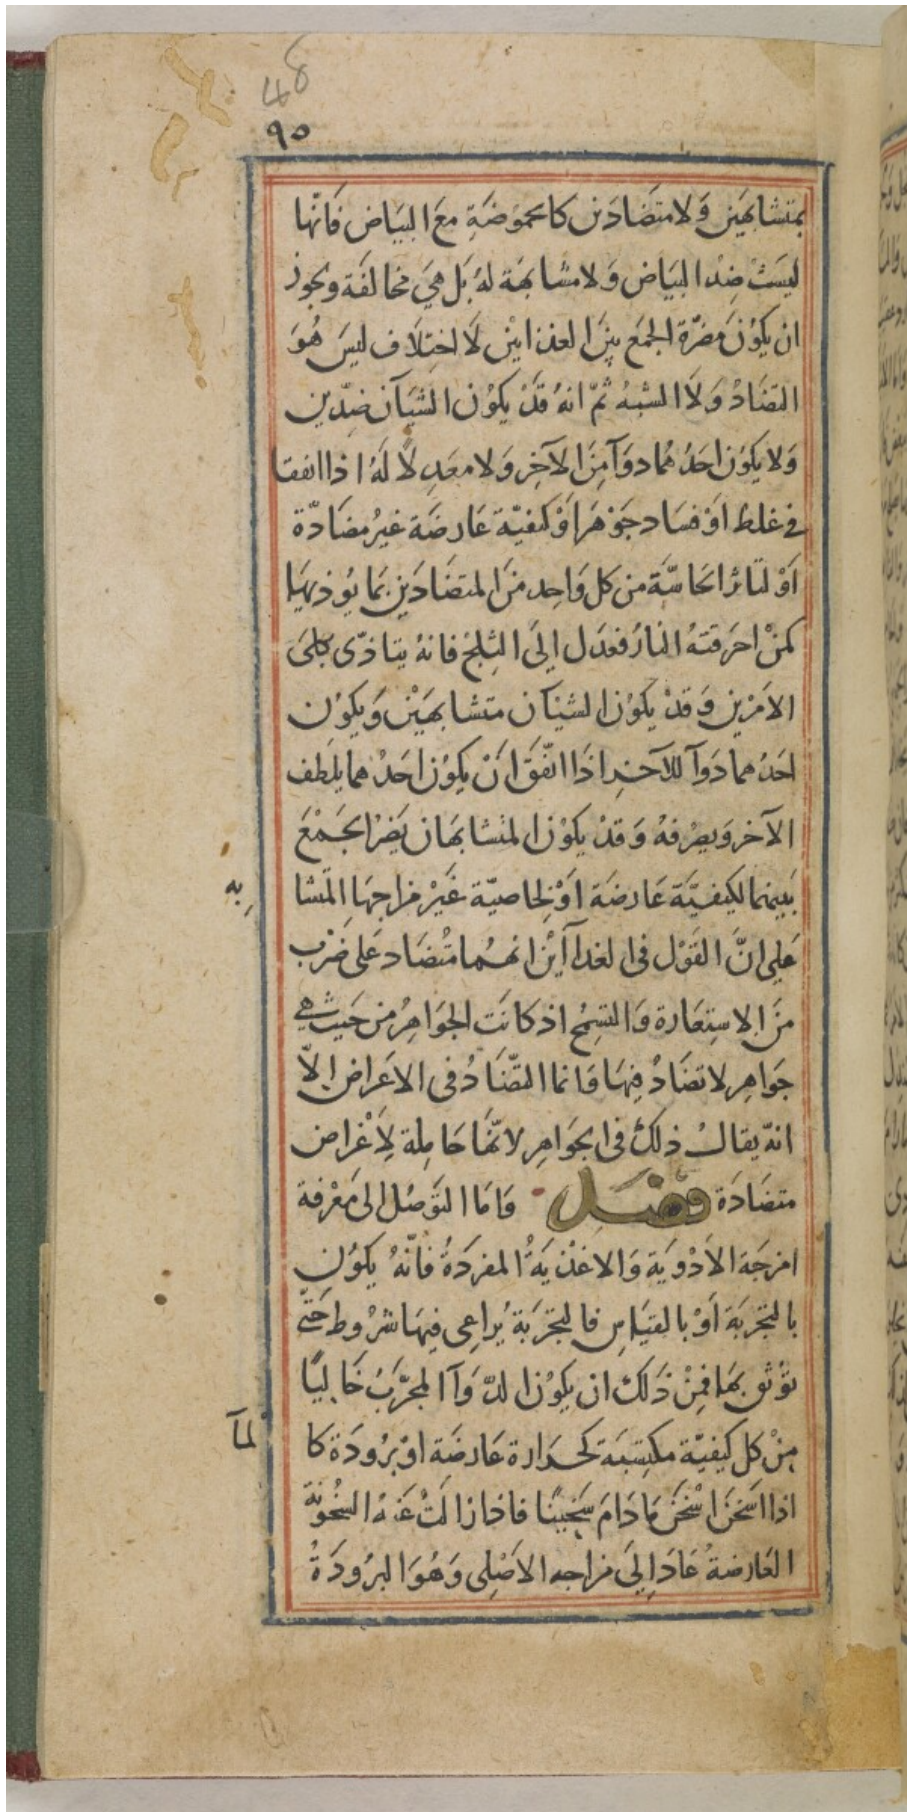 48
٩٥
بمتشابهَين وَلا متضَادَين كالحموضَةِ معَ البيَاض فَانّها
ليسَتْ ضِدْ البيَاض وَلا مشابهَة لهُ بَل هيَ مخالفَة ويجوز
ان يكوُنَ مضرّة الجمَع بيَن الغذاايْن لَاختِلَاف ليسَ هُوَ
التضَادُ وَلَا الشبهُ ثمّ انهُ قَدْ يكوُن الشيَآن ضِدّين
وَلا يكوُن احَدُهُما دوَآ مِنَ الآخِر وَلا معَدِلًا لَهُ اذا اتفقا
في غلط اوْ فسَاد جَوْهَر اَوْ كيَفيّة عَارضَة غيرُ مضَادّة
اَوْ لتَاثر الحَاسَّة من كل وَاحِد منَ المتضَادَين بمَا يوُذيهَا
كمنْ احرَقتهُ النارُ فعَدَل اِلَى الثِلج فانهُ يتاذّى بكلَى
الامَرْين وَقدْ يكوُن الشيَئان متشابهَيْن وَيكوُن
احَدُهما دَوَآ للآخِر اذَا اتّفقَ انَ يكوُن احَدُهما يلَطف
الآخر وَيصْرفهُ وَقدْ يكوُن المتشابهَان يَضرُ الجَمْعَ
بَينهما لكيَفيَّة عَارضَة اَوْ لخاصيّة غَيْر مزاجهَا المتشا
به
عَلي انَّ القَوْل في الغدآأيْن انهُما متُضَاد عَلى ضَرْب
منَ الاستِعَارة وَالتسِمُح اذ كانَت الجوَاهِرُ من حَيث هي
جوَاهِر لا تضَادُ فيهَا وَانما التضَّادُ في الاعَراض اِلاّ
انهّ يقال ذلك في الجوَاهِر لانهَّا حَامِلة لِاَعْراض
متضَادَة فصل وَامَا التوَصّل الى مَعْرفة
امزجَة الاَدْويَة وَالاغذيَةُ المفردَةُ فأنّهُ يكوُن
بالتجربَة اَوْ بالقيَاسِ فالتجرَبَة يُراعِى فيهَا شرُوط حَتّى
توُثق بهَا فمِنْ ذَلك ان يكوُن الدّوَآ المجرَّبَ خَاليًا
مِنْ كل كيَفيّة مكتِسبَة كحَرارة عَارضَة اوْ برُودَة كا
لمآ
اذا اسَخنَ اسْخَنَ مَادَامَ سَخِينًا فاذا زالتْ عَنهُ السخوُنة
العَارضةُ عَادَ اِلَى مزاجه الاصَلى وَهُوَ البرُودَةُ